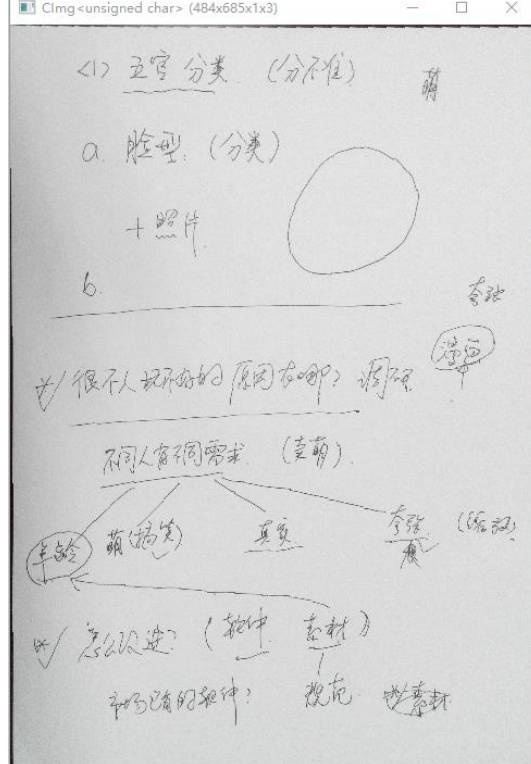 CImg<unsigned char> (484x685x1x3)
<1> 五官分类 (分不准)
萌
a. 脸型: (分类)
+照片
b.
夸张
漫画
*/ 很不人 的原因在哪? 调研
不同人有不同需求. (卖萌).
年龄 萌(搞笑) 真实 夸张
*/ 怎么改进? (软件 素材)
市场已有的软件? 规范 素材